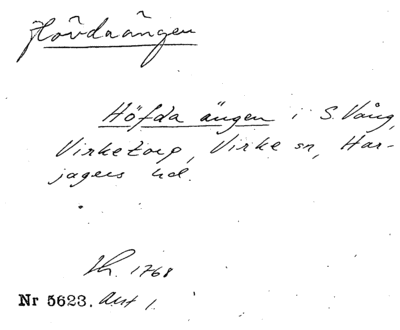 Hövdaängen
Höfda ängen i S. Vång,
Virketorp, Virke sn, Har-
jagers hd.
1768
Nr 5623. Akt 1.